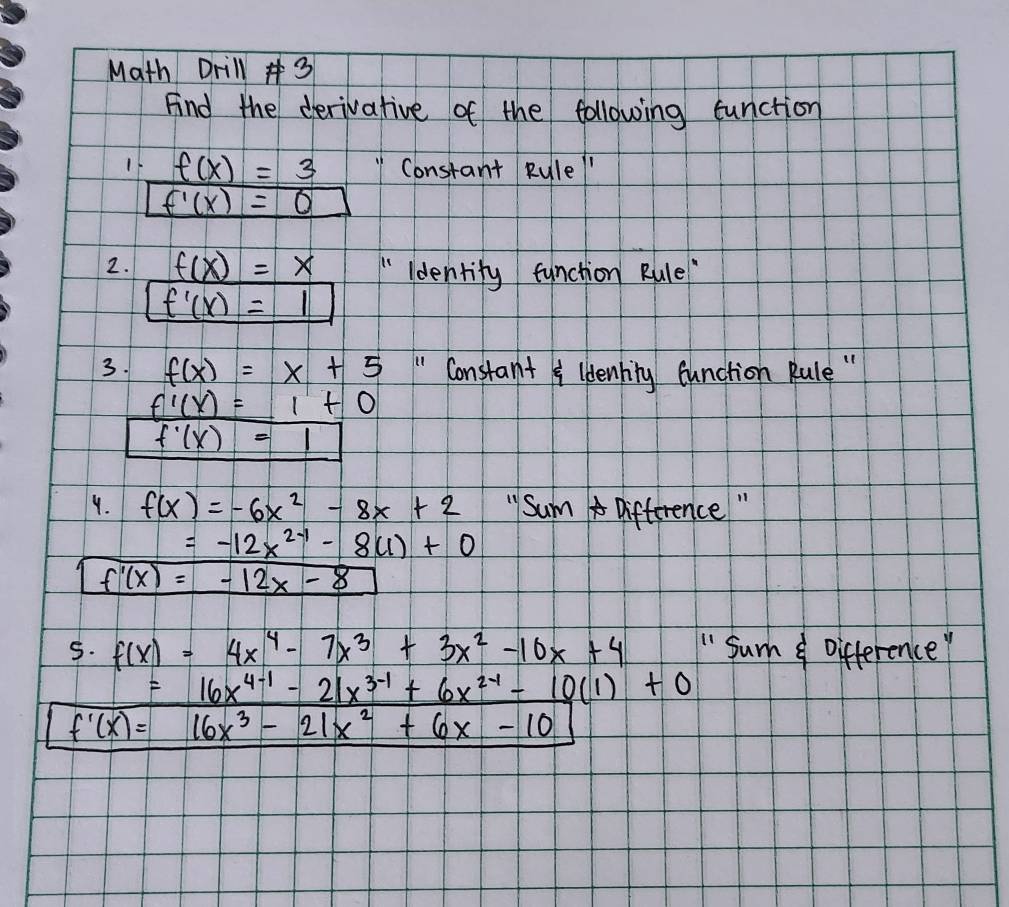 Math Drill # 3
Find the derivative of the following function
1. f(x) = 3 "Constant Rule"
f'(x) = 0
2. f(x) = x "Identity function Rule"
f'(x) = 1
3. f(x) = x + 5 "Constant & Identity function Rule"
f'(x) = 1 + 0
f'(x) = 1
4. f(x) = -6x² - 8x + 2 "Sum & Difference"
= -12x²⁻¹ - 8(1) + 0
f'(x) = -12x - 8
5. f(x) = 4x⁴ - 7x³ + 3x² - 10x + 4 "Sum & Difference"
= 16x⁴⁻¹ - 21x³⁻¹ + 6x²⁻¹ - 10(1) + 0
f'(x) = 16x³ - 21x² + 6x - 10